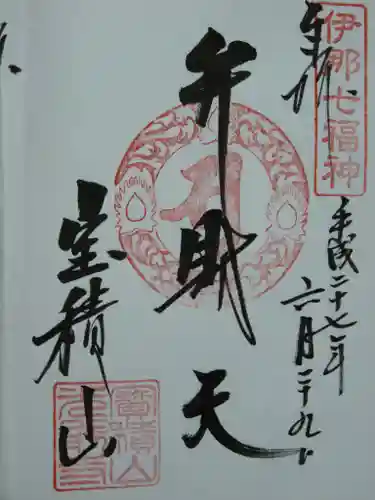 奉拝
伊那七福神
平成二十七年
六月二十九日
弁財天
宝積山
寶積山
光前寺